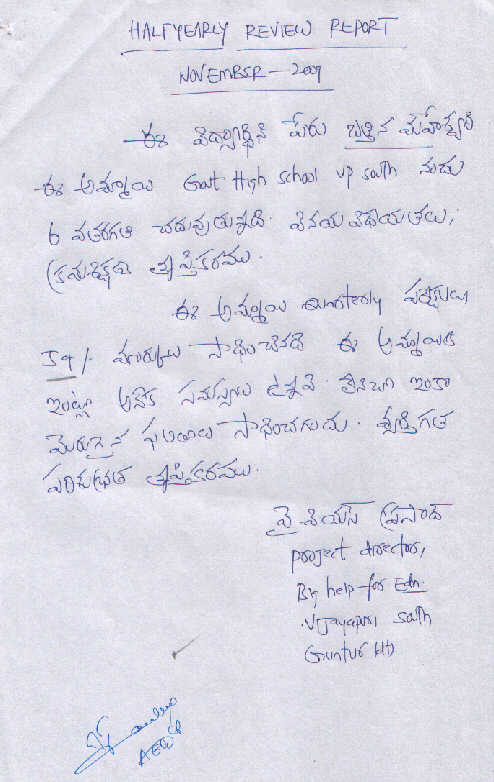 HALFYEARLY REVIEW REPORT
NOVEMBER - 2009
ఈ విద్యార్థిని పేరు బత్తిన మహేశ్వరి
ఈ అమ్మాయి Govt High school up south నందు
6 వతరగతి చదువుతున్నది. వినయ విధేయతలు,
క్రమశిక్షణ తృప్తికరము.
ఈ అమ్మాయి Quarterly పరీక్షలు
మార్కులు సాధించినది ఈ అమ్మాయికి
ఇంట్లో అనేక సమస్యలు ఉన్నవి. ఇంకా
మెరుగైన ఫలితాలు సాధించగలదు. వ్యక్తిగత
పరిశుభ్రత తృప్తికరము.
వై శియస్ ప్రసాద్
project director,
Big help for Edn.
Vijayapuri south
Guntur (dt)